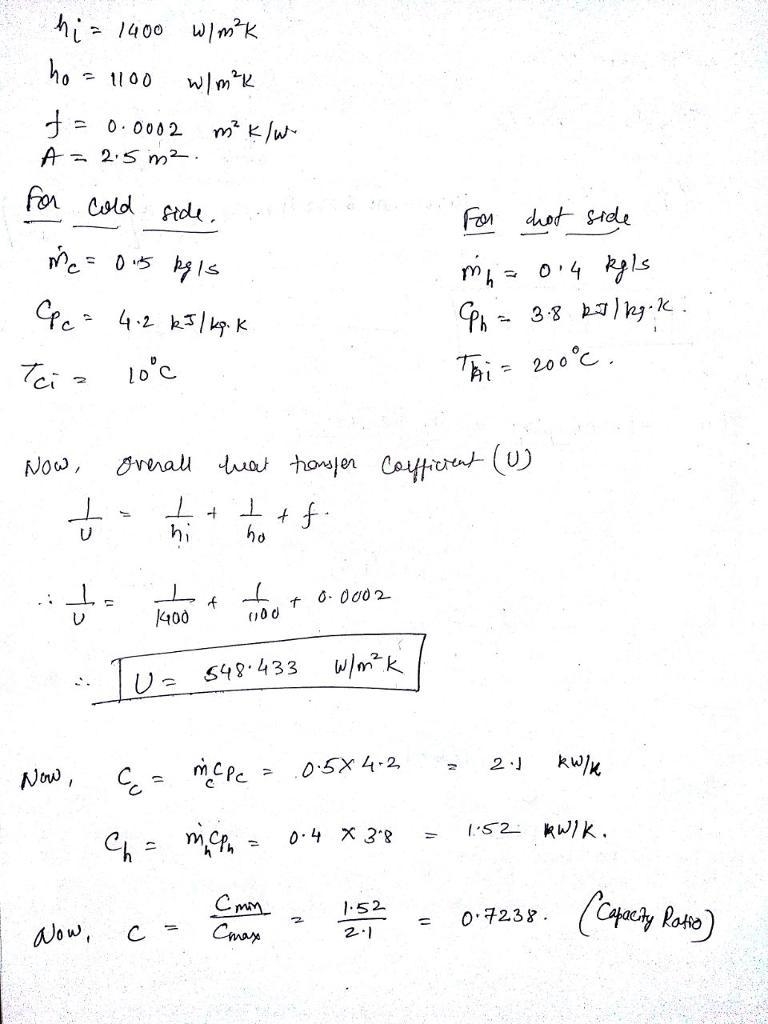 hi = 1400 W/m²K
ho = 1100 W/m²K
f = 0.0002 m² K/W
A = 2.5 m².
For cold side.
ṁc = 0.5 kg/s
Cpc = 4.2 kJ/kg.K
Tci = 10°C
For hot side
ṁh = 0.4 kg/s
Cph = 3.8 kJ/kg.K.
Thi = 200°C.
Now, Overall heat transfer Coefficient (U)
1/U = 1/hi + 1/ho + f.
∴ 1/U = 1/1400 + 1/1100 + 0.0002
∴ U = 548.433 W/m²K
Now, Cc = ṁcCpc = 0.5 × 4.2 = 2.1 kW/K
Ch = ṁhCph = 0.4 × 3.8 = 1.52 kW/K.
Now, C = Cmin/Cmax = 1.52/2.1 = 0.7238. (Capacity Ratio)